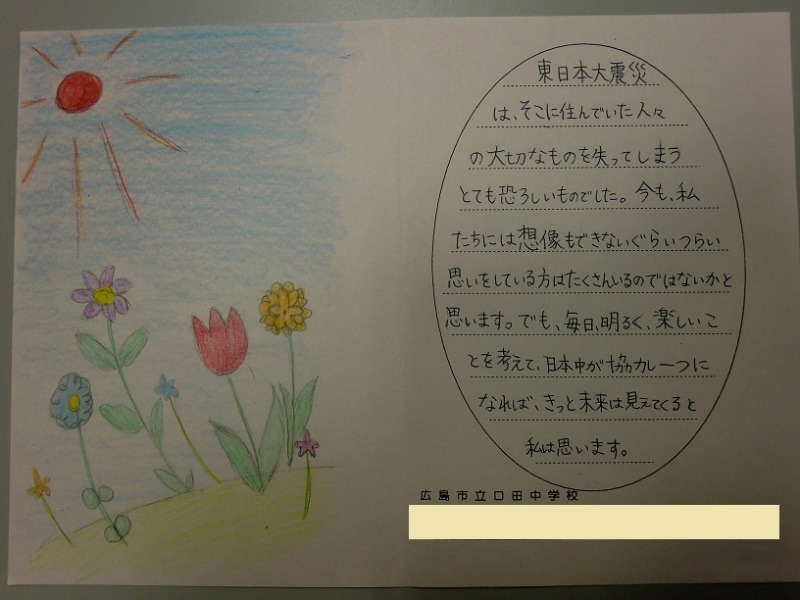 東日本大震災
は、そこに住んでいた人々
の大切なものを失ってしまう
とても恐ろしいものでした。今も、私
たちには想像もできないぐらいつらい
思いをしている方はたくさんいるのではないかと
思います。でも、毎日、明るく、楽しいこ
とを考えて、日本中が協力し一つに
なれば、きっと未来は見えてくると
私は思います。
広島市立口田中学校